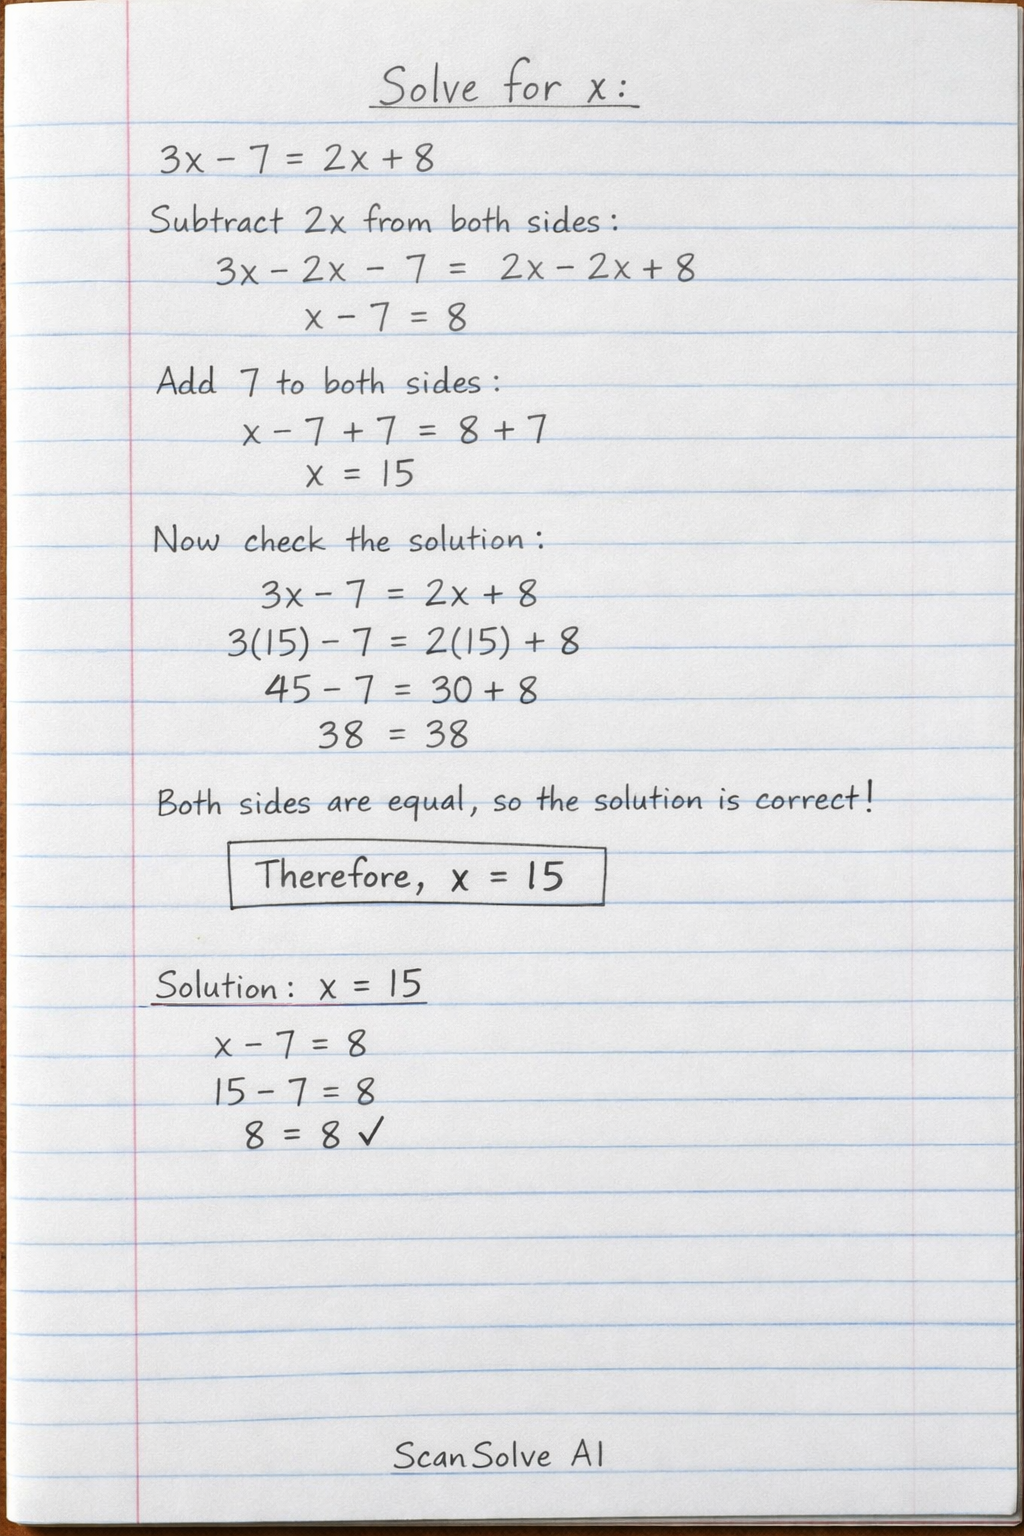 Solve for x:
3x - 7 = 2x + 8
Subtract 2x from both sides:
3x - 2x - 7 = 2x - 2x + 8
x - 7 = 8
Add 7 to both sides:
x - 7 + 7 = 8 + 7
x = 15
Now check the solution:
3x - 7 = 2x + 8
3(15) - 7 = 2(15) + 8
45 - 7 = 30 + 8
38 = 38
Both sides are equal, so the solution is correct!
Therefore, x = 15
Solution: x = 15
x - 7 = 8
15 - 7 = 8
8 = 8 ✓
ScanSolve AI